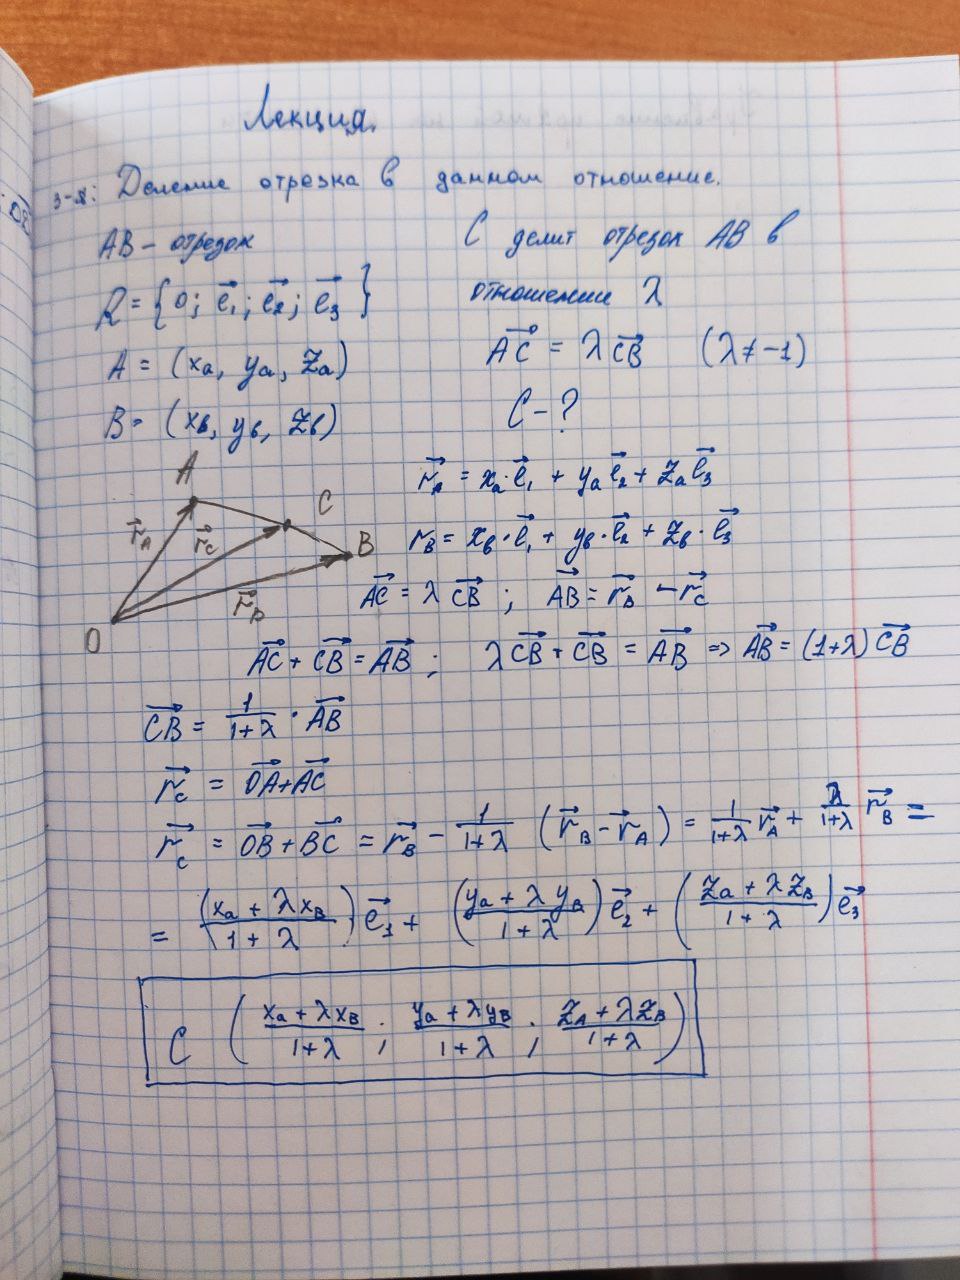 Лекция.
З-8: Деление отрезка в данном отношение.
AB – отрезок
R = {0; e⃗₁; e⃗₂; e⃗₃}
A = (xa, ya, za)
B = (xв, yв, zв)
C делит отрезок AB в
отношении λ
AC⃗ = λ CB⃗ (λ ≠ -1)
C - ?
A
C
B
O
r⃗A
r⃗C
r⃗B
r⃗A = xa·e⃗₁ + ya e⃗₂ + za e⃗₃
rB = xв·e⃗₁ + yв·e⃗₂ + zв·e⃗₃
AC⃗ = λ CB⃗ ; AB⃗ = r⃗B - r⃗C
AC⃗ + CB⃗ = AB⃗ ; λ CB⃗ + CB⃗ = AB⃗ => AB⃗ = (1+λ) CB⃗
CB⃗ = 1/(1+λ) · AB⃗
r⃗C = OA⃗ + AC⃗
r⃗C = OB⃗ + BC⃗ = r⃗B - 1/(1+λ) (r⃗B - r⃗A) = 1/(1+λ) r⃗A + λ/(1+λ) r⃗B =
= ((xa + λxB)/(1+λ)) e⃗₁ + ((ya + λyB)/(1+λ)) e⃗₂ + ((za + λzB)/(1+λ)) e⃗₃
C ((xa + λxB)/(1+λ) ; (ya + λyB)/(1+λ) ; (zA + λzB)/(1+λ))